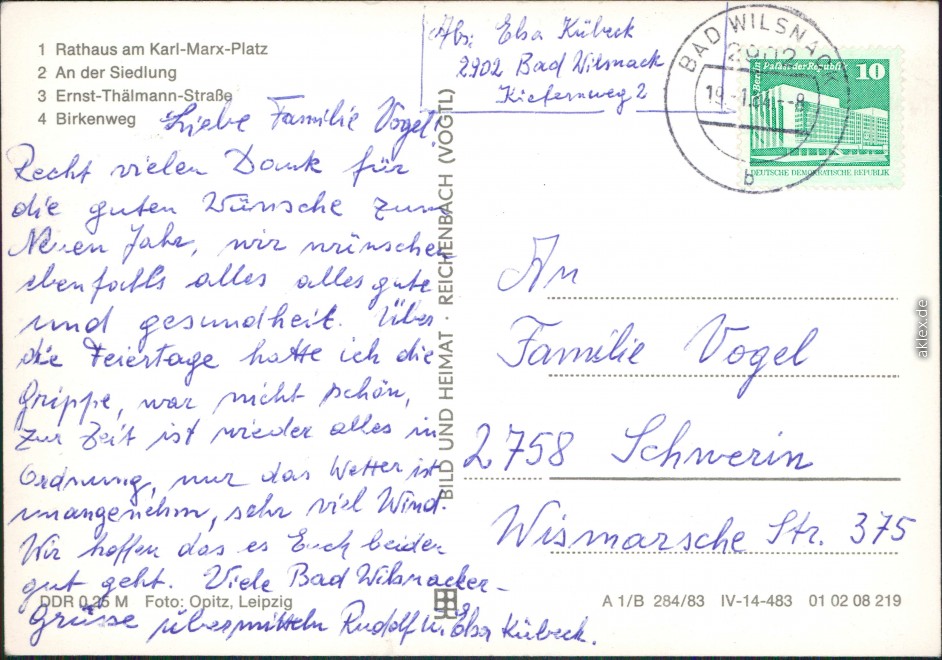 1 Rathaus am Karl-Marx-Platz
2 An der Siedlung
3 Ernst-Thälmann-Straße
4 Birkenweg
Abs. Elsa Kübeck
2902 Bad Wilsnack
Kiefernweg 2
BAD WILSNACK
2902
b
Palast der Republik
10
DEUTSCHE DEMOKRATISCHE REPUBLIK
Liebe Familie Vogel!
Recht vielen Dank für
die guten Wünsche zum
Neuen Jahr, wir wünschen
ebenfalls alles alles gute
und gesundheit. Über
die Feiertage hatte ich die
Grippe, war nicht schön,
zur Zeit ist wieder alles in
Ordnung, nur das Wetter ist
unangenehm, sehr viel Wind.
Wir hoffen das es Euch beiden
gut geht. Viele Bad Wilsnacker-
Grüsse übermitteln Rudolf u. Elsa Kübeck.
BILD UND HEIMAT · REICHENBACH (VOGTL)
An
Familie Vogel
2758 Schwerin
Wismarsche Str. 375
DDR 0,25 M Foto: Opitz, Leipzig
A 1/B 284/83 IV-14-483 01 02 08 219
aklex.de